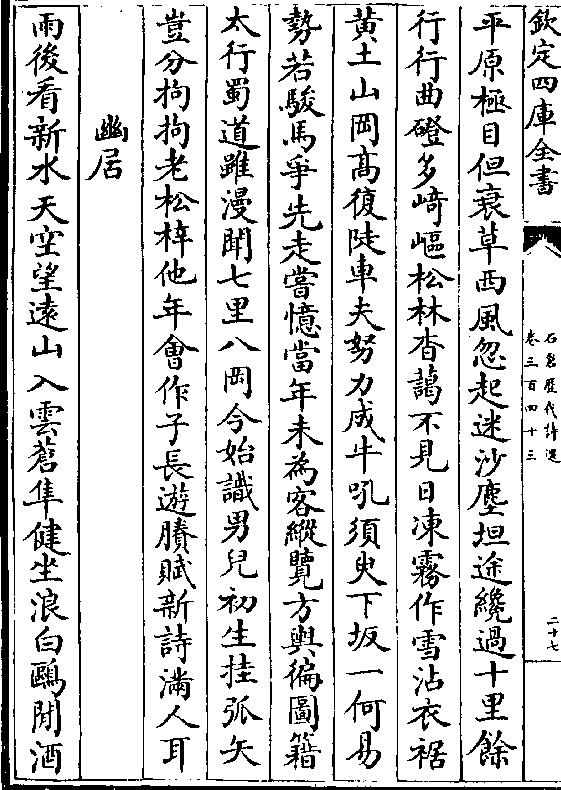 欽定四庫全書
石倉歷代詩選
卷三百四十三
二十七
平原極目但衰草西風忽起迷沙塵坦途纔過十里餘
行行曲磴多﨑嶇松林杳藹不見日凍霧作雪沾衣裾
黄土山岡髙復陡車夫努力成牛吼須臾下坂一何易
勢若駿馬爭先走嘗憶當年未為客縱覽方輿徧圖籍
太行蜀道雖漫聞七里八岡今始識男兒初生挂弧矢
豈分拘拘老松梓他年會作子長遊賸賦新詩滿人耳
幽居
雨後看新水天空望遠山入雲蒼隼健坐浪白鷗閒酒